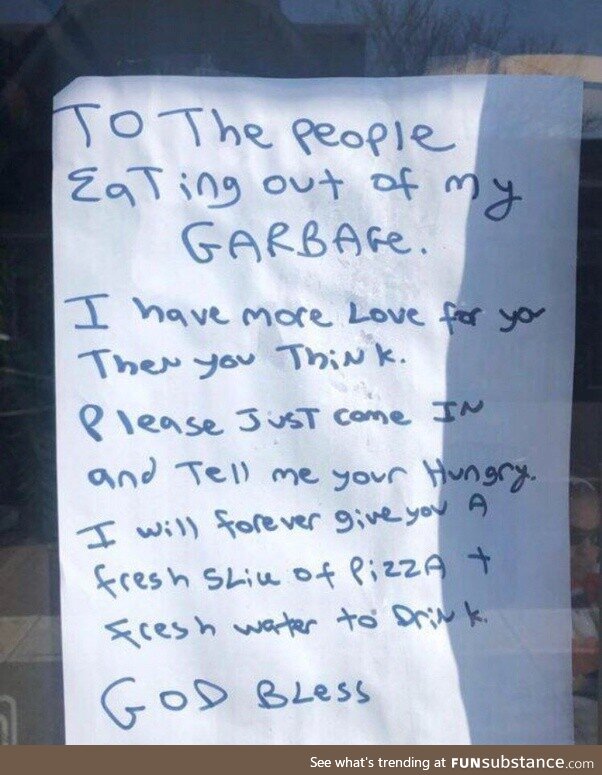 To The people
EaTing out of my
GARBAGe.
I have more Love for you
Then you Think.
Please JusT come IN
and Tell me your Hungry.
I will forever give you A
fresh SLice of PizzA +
fresh water to Drink.
GOD BLess
See what's trending at FUNsubstance.com